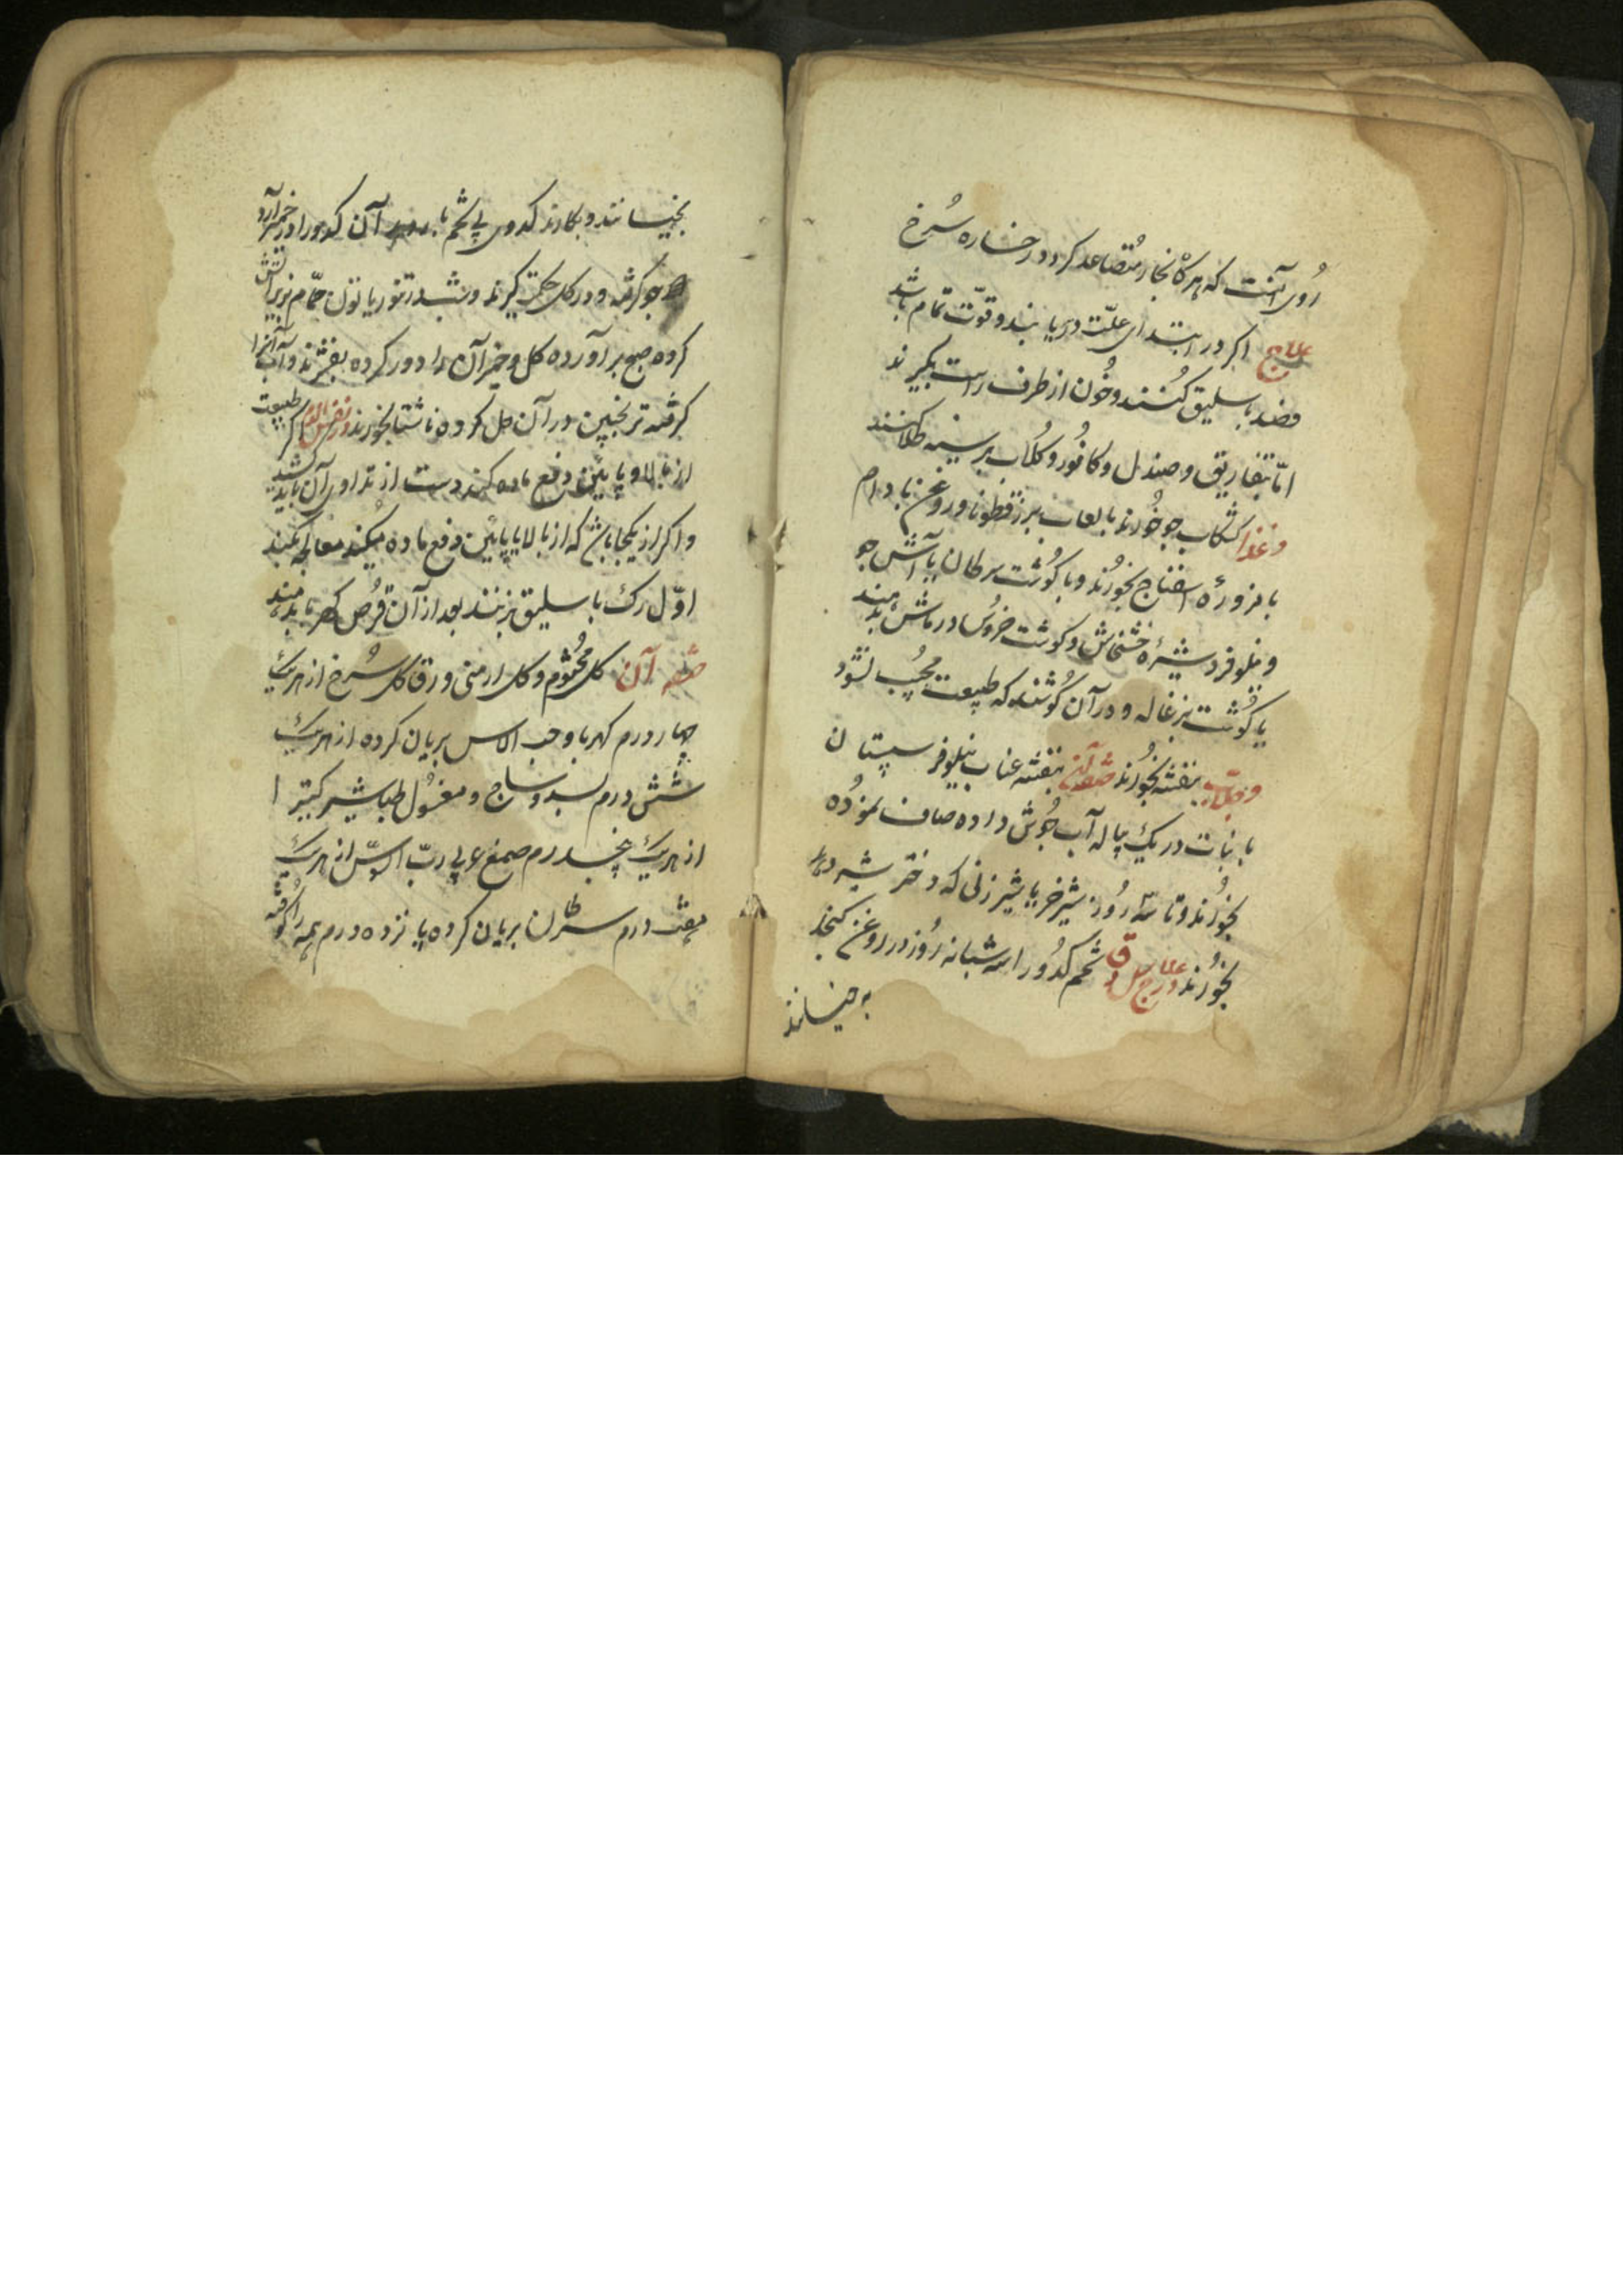 رُوی آنست که هر گاه بخار مُتصاعد کردد رخساره سُرخ
علاج اکر در ابتدای علّت دریابند و قوّت تمام باشد
فصد باسلیق کُنند و خُون از طرف راست بگیرند
امّا بتفاریق و صندل و کافُور و کلاب بر سینه طلا کنند
و غذا کشکاب جو خُورند با لعاب بزرقطونا و روغن بادام
با مزورهٔ اسفناج بخورُند و با کُوشت سرطان یا آش جو
و نیلوفر و شیرهٔ خشخاش و کوشت خروُس در ماش بدهند
یا کُوشت بزغاله و در آن کُوشند که طبیعت مجیب نشود
و جلاب بنفشه بخوُرند صفه آن بنفشه عناب نیلوفر سپستان
با نبات در یک پیاله آب جُوش داده صاف نموُده
بخُورند و تا سّه رُوز شیر خر یا شیر زنی که دختر شیر دهد
بخوُرند و علاج دق تخم کدُو را سه شبانه رُوز در روغن کنجد
به خیسانند
بخیسانند و بکارند کدوی بی تخم با آن کدو را در خمیر آرد
جو کرفته و در کل حکمت کیرند و شب در تنور یا تون حمّام زیر آتش
کرده صبح برآورده کل و خمیر آن را دور کرده بفشرند و آب آنرا
کرفته ترنجبین در آن حل کرده ناشتا بخورند و نفث الدم اکر طبیعت
از بالا و پایین دفع ماده کند دست از تداوی آن باید کشید
و اکر از یکجا باشد که از بالا یا پایین دفع ماده میکند معالجه کنند
اوّل رک باسلیق بزنند بعد از آن قرُص کهربا بدهند
صفه آن کل مختُوم و کل ارمنی ورق کل سُرخ از هر یک
چهار درم کهربا و حب الاس بریان کرده از هر یک
شش درم بسد و ساج و مغسُول طباشیر کتیرا
از هر یک پنجدرم صمغ عربی ربّ السّوس از هر یک
هفت درم سرطان بریان کرده پانزده درم همه را کوفته